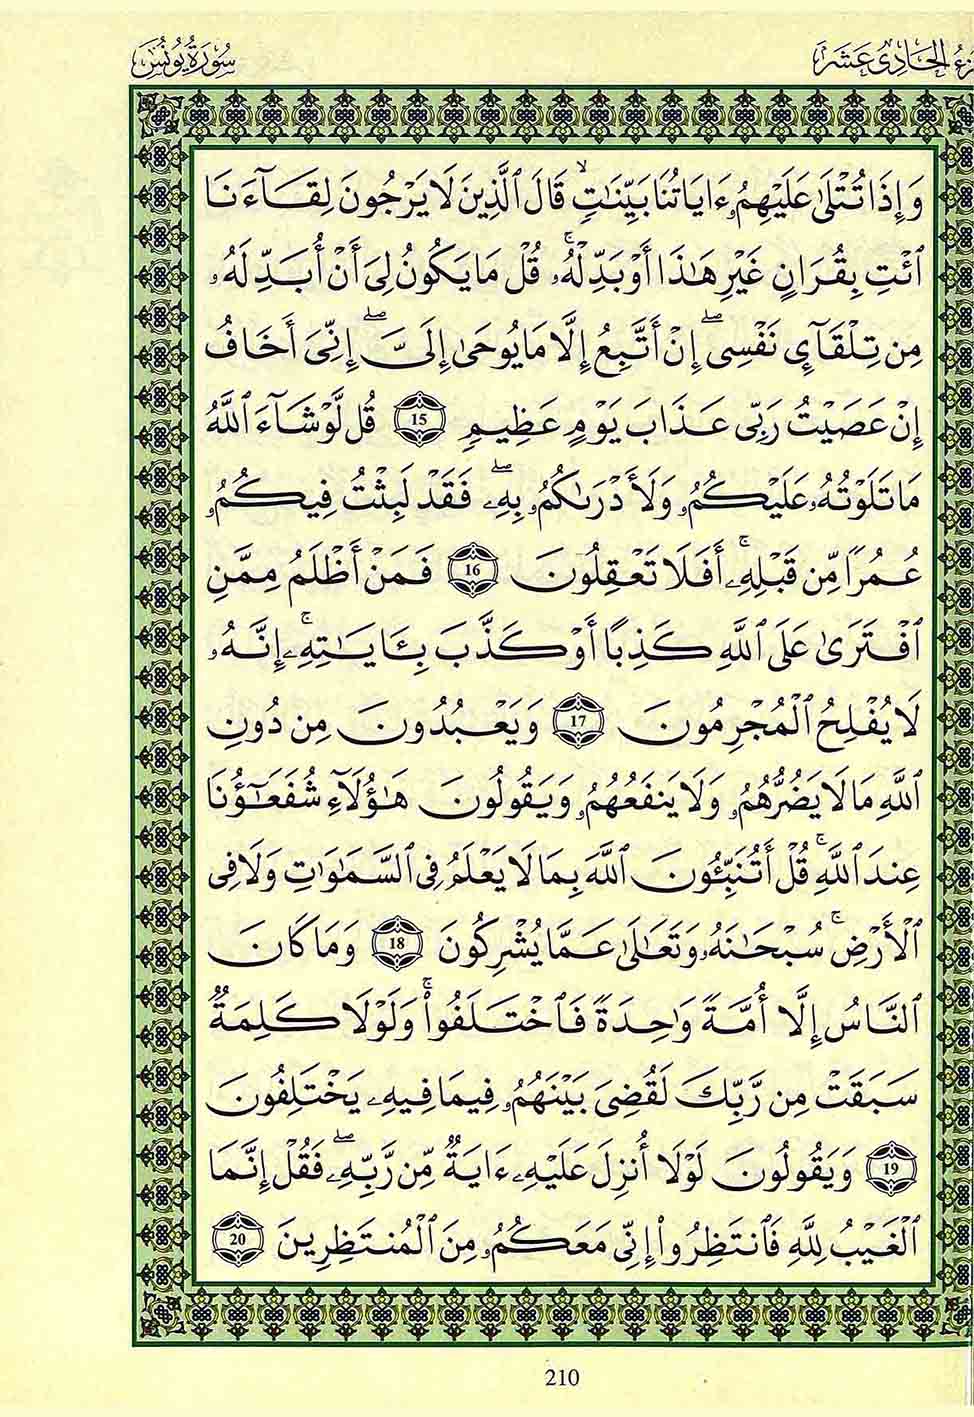 الجزء الحادى عشر
سورة يونس
وَإِذَا تُتْلَىٰ عَلَيْهِمُۥٓ ءَايَاتُنَا بَيِّنَٰتٍ ۙ قَالَ ٱلَّذِينَ لَا يَرْجُونَ لِقَآءَنَا
ٱئْتِ بِقُرَانٍ غَيْرِ هَٰذَا أَوْ بَدِّلْهُۥ ۚ قُلْ مَا يَكُونُ لِىَ أَنْ أُبَدِّلَهُۥ
مِن تِلْقَآىِٕ نَفْسِى ۖ إِنْ أَتَّبِعُ إِلَّا مَا يُوحَىٰ إِلَىَّ ۖ إِنِّىَ أَخَافُ
إِنْ عَصَيْتُ رَبِّى عَذَابَ يَوْمٍ عَظِيمٍ 15 قُل لَّوْ شَآءَ ٱللَّهُ
مَا تَلَوْتُهُۥ عَلَيْكُمُۥ وَلَأَدْرَىٰكُمُۥ بِهِۦ ۖ فَقَدْ لَبِثْتُ فِيكُمُۥ
عُمُرًا مِّن قَبْلِهِۦٓ ۚ أَفَلَا تَعْقِلُونَ 16 فَمَنْ أَظْلَمُ مِمَّنِ
ٱفْتَرَىٰ عَلَى ٱللَّهِ كَذِبًا أَوْ كَذَّبَ بِـَٔايَٰتِهِۦٓ ۚ إِنَّهُۥ
لَا يُفْلِحُ ٱلْمُجْرِمُونَ 17 وَيَعْبُدُونَ مِن دُونِ
ٱللَّهِ مَا لَا يَضُرُّهُمُۥ وَلَا يَنفَعُهُمُۥ وَيَقُولُونَ هَٰٓؤُلَآءِ شُفَعَٰٓؤُنَا
عِندَ ٱللَّهِ ۚ قُلْ أَتُنَبِّـُٔونَ ٱللَّهَ بِمَا لَا يَعْلَمُ فِى ٱلسَّمَٰوَٰتِ وَلَا فِى
ٱلْأَرْضِ ۚ سُبْحَٰنَهُۥ وَتَعَٰلَىٰ عَمَّا يُشْرِكُونَ 18 وَمَا كَانَ
ٱلنَّاسُ إِلَّا أُمَّةً وَٰحِدَةً فَٱخْتَلَفُوا۟ ۚ وَلَوْلَا كَلِمَةٌ
سَبَقَتْ مِن رَّبِّكَ لَقُضِىَ بَيْنَهُمُۥ فِيمَا فِيهِۦ يَخْتَلِفُونَ
19 وَيَقُولُونَ لَوْلَا أُنزِلَ عَلَيْهِۦ ءَايَةٌ مِّن رَّبِّهِۦ ۖ فَقُلْ إِنَّمَا
ٱلْغَيْبُ لِلَّهِ فَٱنتَظِرُوا۟ إِنِّى مَعَكُمُۥ مِنَ ٱلْمُنتَظِرِينَ 20
210